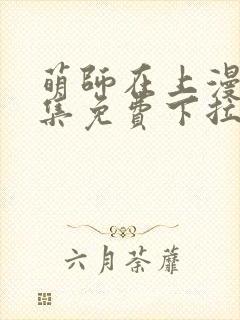 萌师在上漫
集免費下拉
六月荼蘼